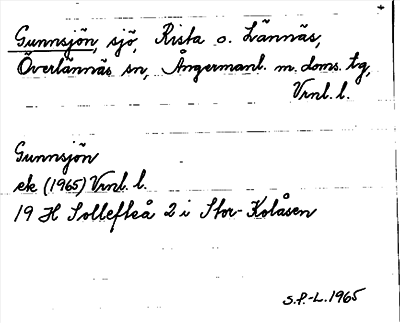 Gunnsjön, sjö, Rista o. Lännäs,
Överlännäs sn, Ångermanl. m. doms. tg,
Vrnl. l.
Gunnsjön
ek (1965) Vrnl. l.
19 H Sollefteå 2 i Stor-Kolåsen
S.P.-L. 1965